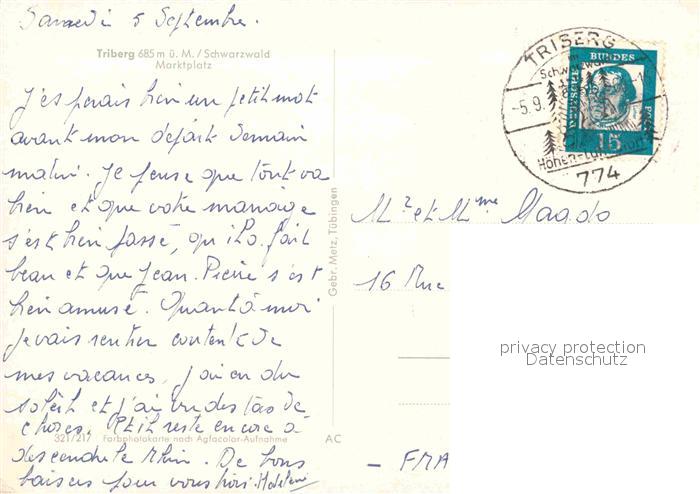 Samedi 5 Septembre.
Triberg 685 m ü. M. / Schwarzwald
Marktplatz
J'espérais bien un petit mot
avant mon départ demain
matin. Je pense que tout va
bien et que votre mariage
s'est bien passé, qu'il a fait
beau et que Jean-Pierre s'est
bien amusé. Quant à moi
je vais rentrer contente de
mes vacances, j'ai eu du
soleil et j'ai vu des tas de
choses. Et il reste encore à
descendre le Rhin. De bons
baisers pour vous trois.
321/217 Farbphotokarte nach Agfacolor-Aufnahme AC
Gebr. Metz, Tübingen
TRIBERG
Schwarzwald
-5.9.
774
BUNDES
POST
15
Mr et Mme Maado
16 Rue
- FMA
privacy protection
Datenschutz